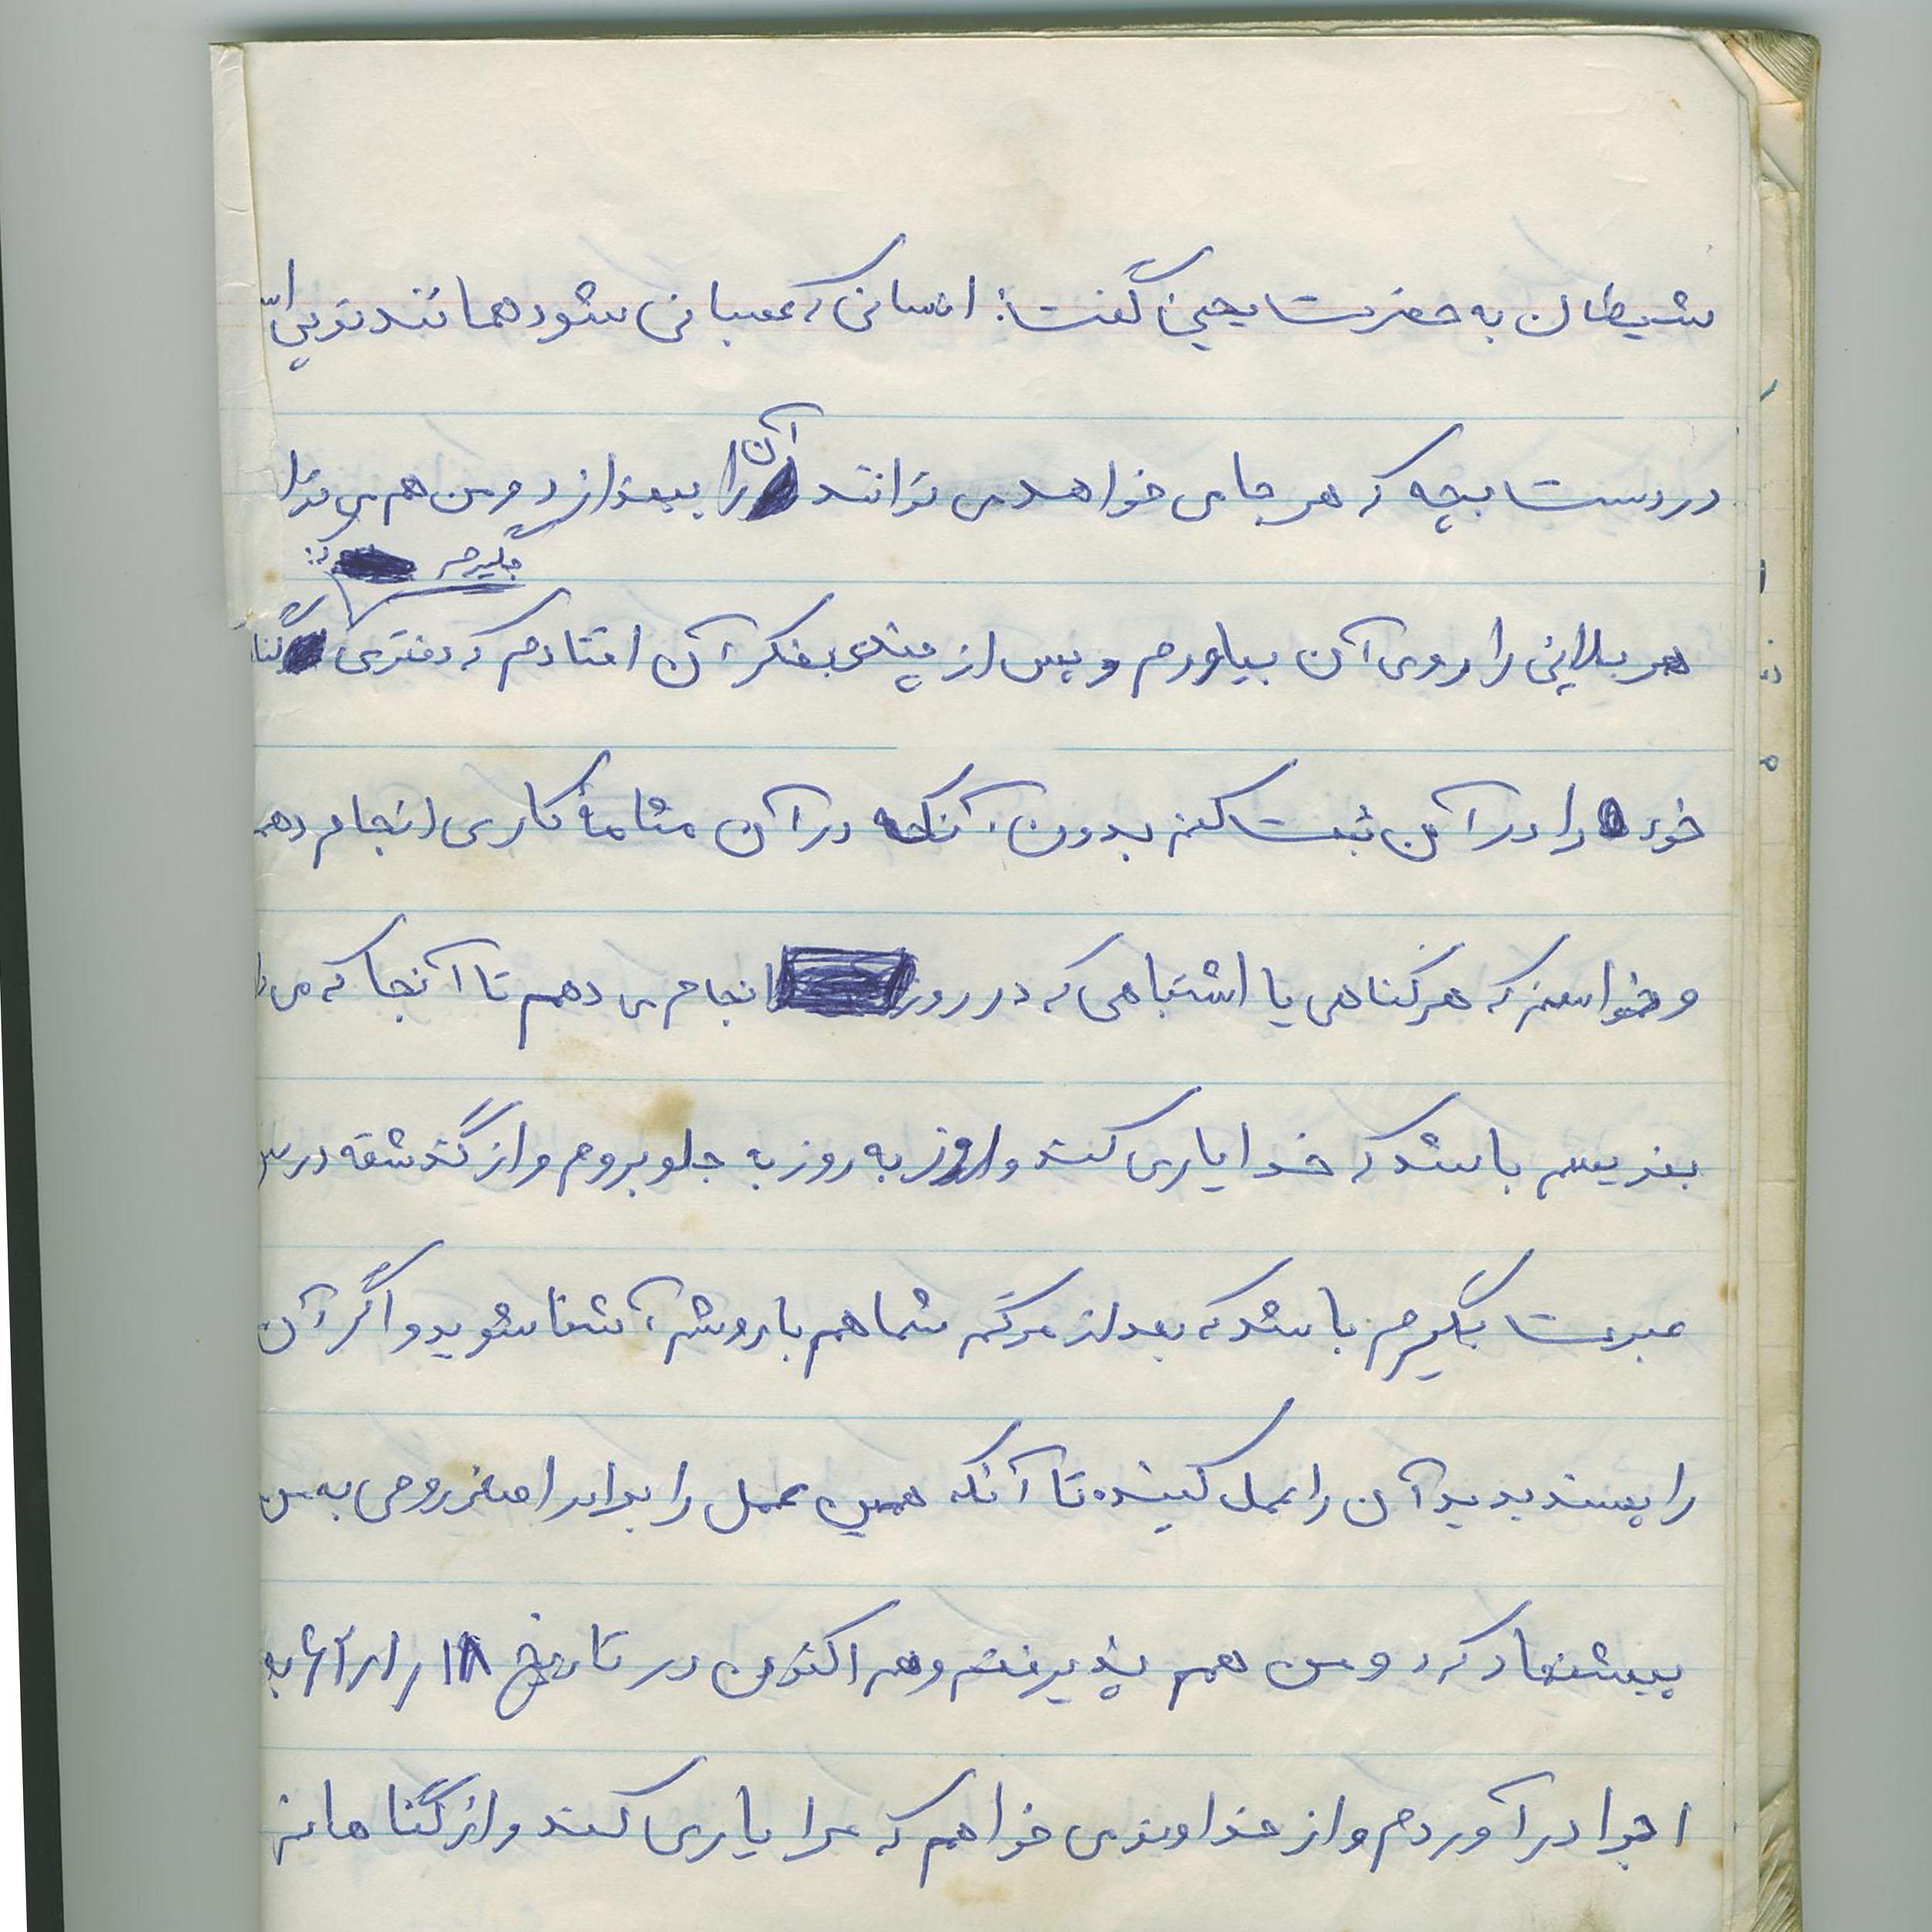 شیطان به حضرت یحیی گفت: انسانی که عصبانی شود همانند توپی است
در دست بچه که هر جا می خواهد می توانند آن را بیندازد و من هم می توانم
هر بلایی را روی آن بیاورم و پس از چندی بفکر آن افتادم که دفتری بگیرم گناه
خود را در آن ثبت کنم بدون آنکه در آن کاری انجام دهم
و خواستم که هر گناهی یا اشتباهی که در روز انجام می دهم تا آنجا که می
بنویسم باشد که خدا یاری کند و روز به روز به جلو بروم و از گذشته درس
عبرت بگیرم باشد که بعد از مرگم شما هم با روشم آشنا شوید و اگر آن
را پسندیدید آن را عمل کنید تا آنکه همین عمل را برادر اصغر روحی به من
پیشنهاد کرد و من هم پذیرفتم و هم اکنون در تاریخ به
اجرا در آوردم و از خداوند می خواهم که مرا یاری کند و از گناهانم